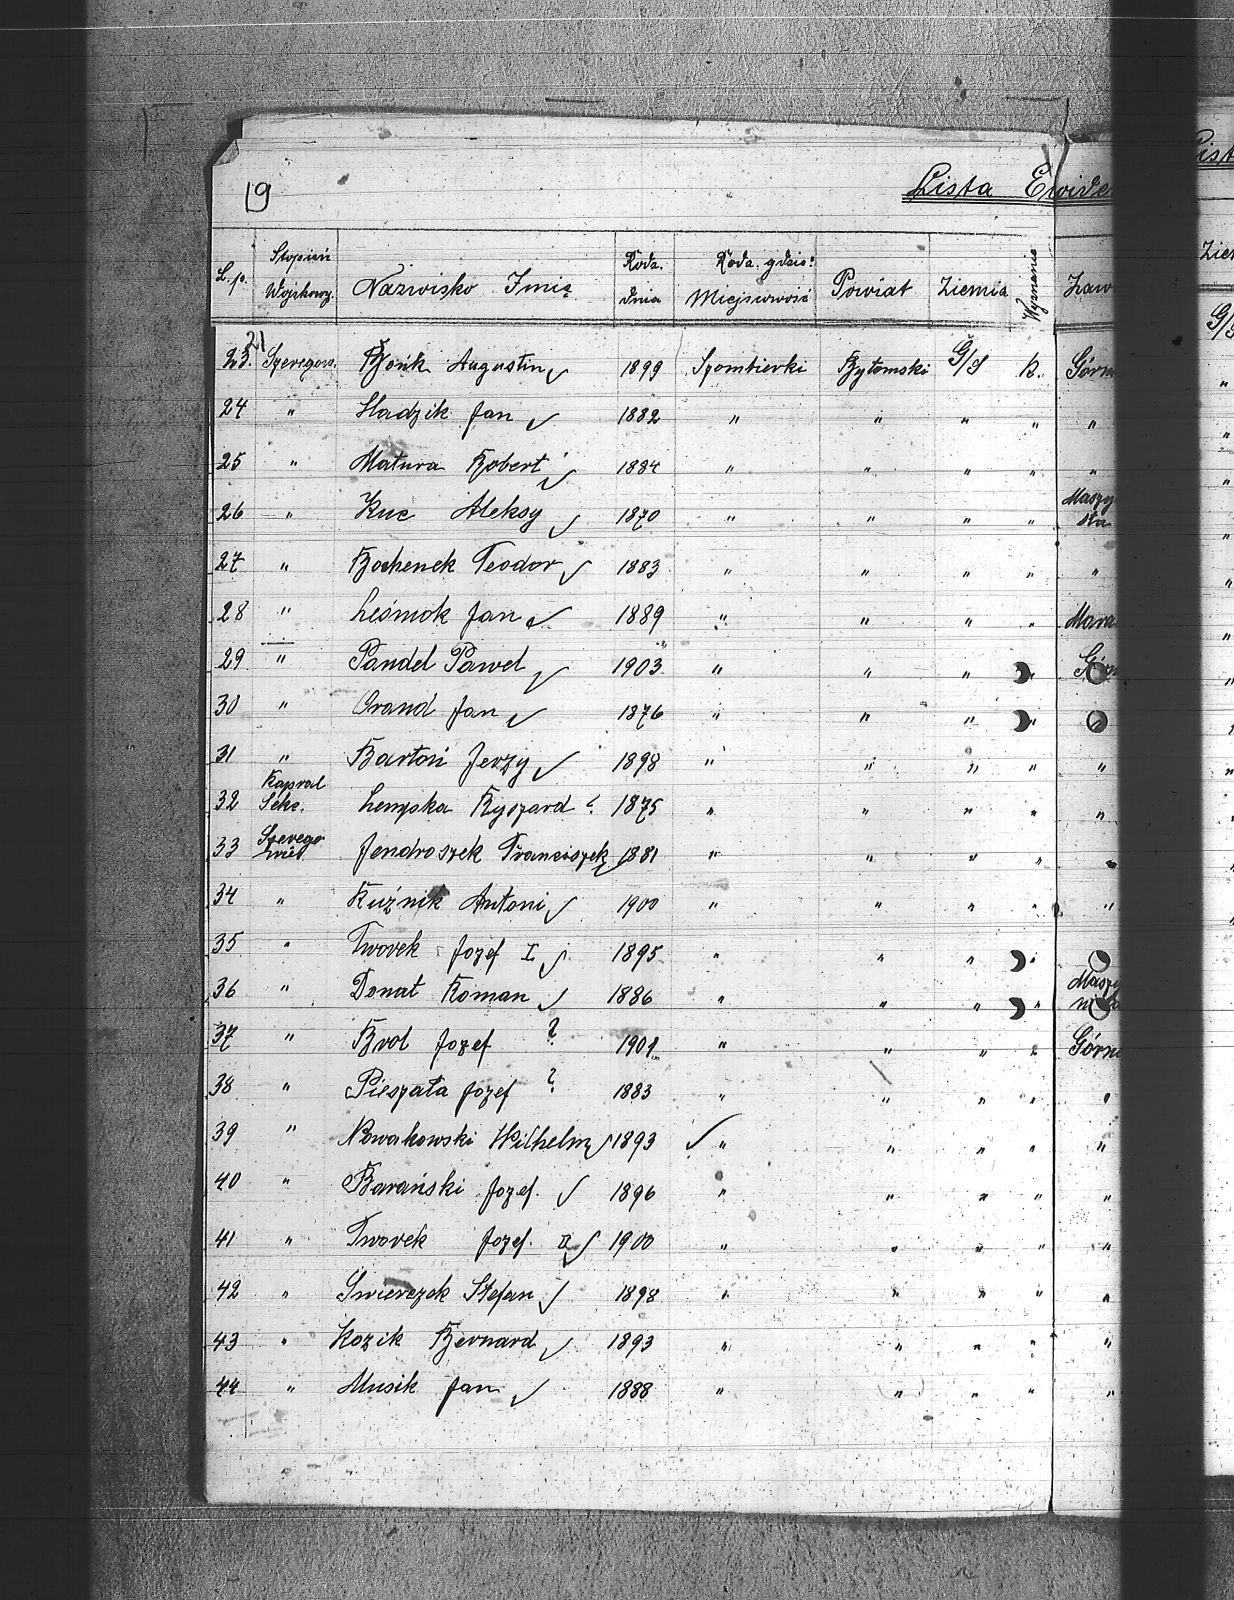 19
Lista Ewide
L.p. Stopień Wojskowy. Nazwisko Imię Rodz. dnia Rodz. gdzie: Miejscowość Powiat Ziemia Wyznanie Zaw
21
23. Szeregow. Bonk Augustin 1899 Szombierki Bytomski G/S k. Górn
24 " Hadzik Jan 1882 " " " " "
25 " Matura Robert 1884 " " " " "
26 " Kuc Aleksy 1870 " " " " Maszy sta
27 " Bochenek Teodor 1883 " " " " "
28 " Leśmok Jan 1889 " " " "
29 " Pandel Paweł 1903 " " " " Górn
30 " Orand Jan 1876 " " " " "
31 " Bartoń Jerzy 1898 " " " " "
32 Kapral Sekc. Lempka Ryszard ? 1875 " " " " "
33 Szerego wiec Jendroszek Franciszek 1881 " " " " "
34 " Kuźnik Antoni 1900 " " " " "
35 " Tworek Jozef I 1895 " " " "
36 " Donat Roman 1886 " " " " Maszy
37 " Brol Jozef ? 1901 " " " " Górn
38 " Pieszata Jozef ? 1883 " " " " "
39 " Nowakowski Wilhelm 1893 " " " " "
40 " Barański Jozef. 1896 " " " " "
41 " Tworek Jozef. II 1900 " " " " "
42 " Swierczek Stefan 1898 " " " " "
43 " Kozik Bernard 1893 " " " " "
44 " Musik Jan 1888 " " " " "